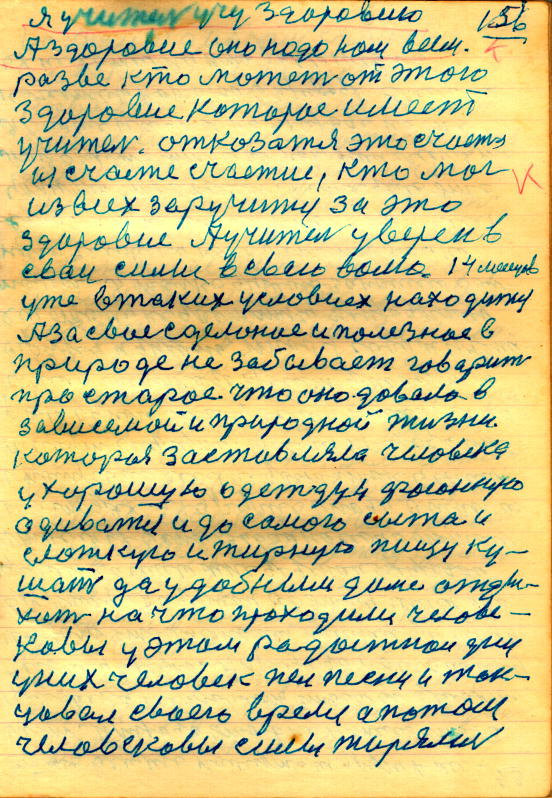 я учител учу здоровию 156
А здоровие оно надо нам всем.
разве кто может от этого
здоровие которое имеет
учител. отказатя это счасте
из счасте счастие, кто мог
из всех заручитц за это
здоровие Я учител уверен в
сваи силы в свою волю. 14 месецов
уже в таких условиех находитц
А за свое сделоное и полезное в
природе не забывает говорит
про старое. что оно довало в
зависемой и природной жизни
которая заставляла человека
у хорошую одетжду и фасонную
одиватц и до самого сыта и
слоткую и жирную пищу ку-
шат да удобным доме отды-
хат на что проходили челове-
ковы у этом радостнои дни
у них человек пел песни и тан-
цовал своего время а потом
человековы силы тирялис